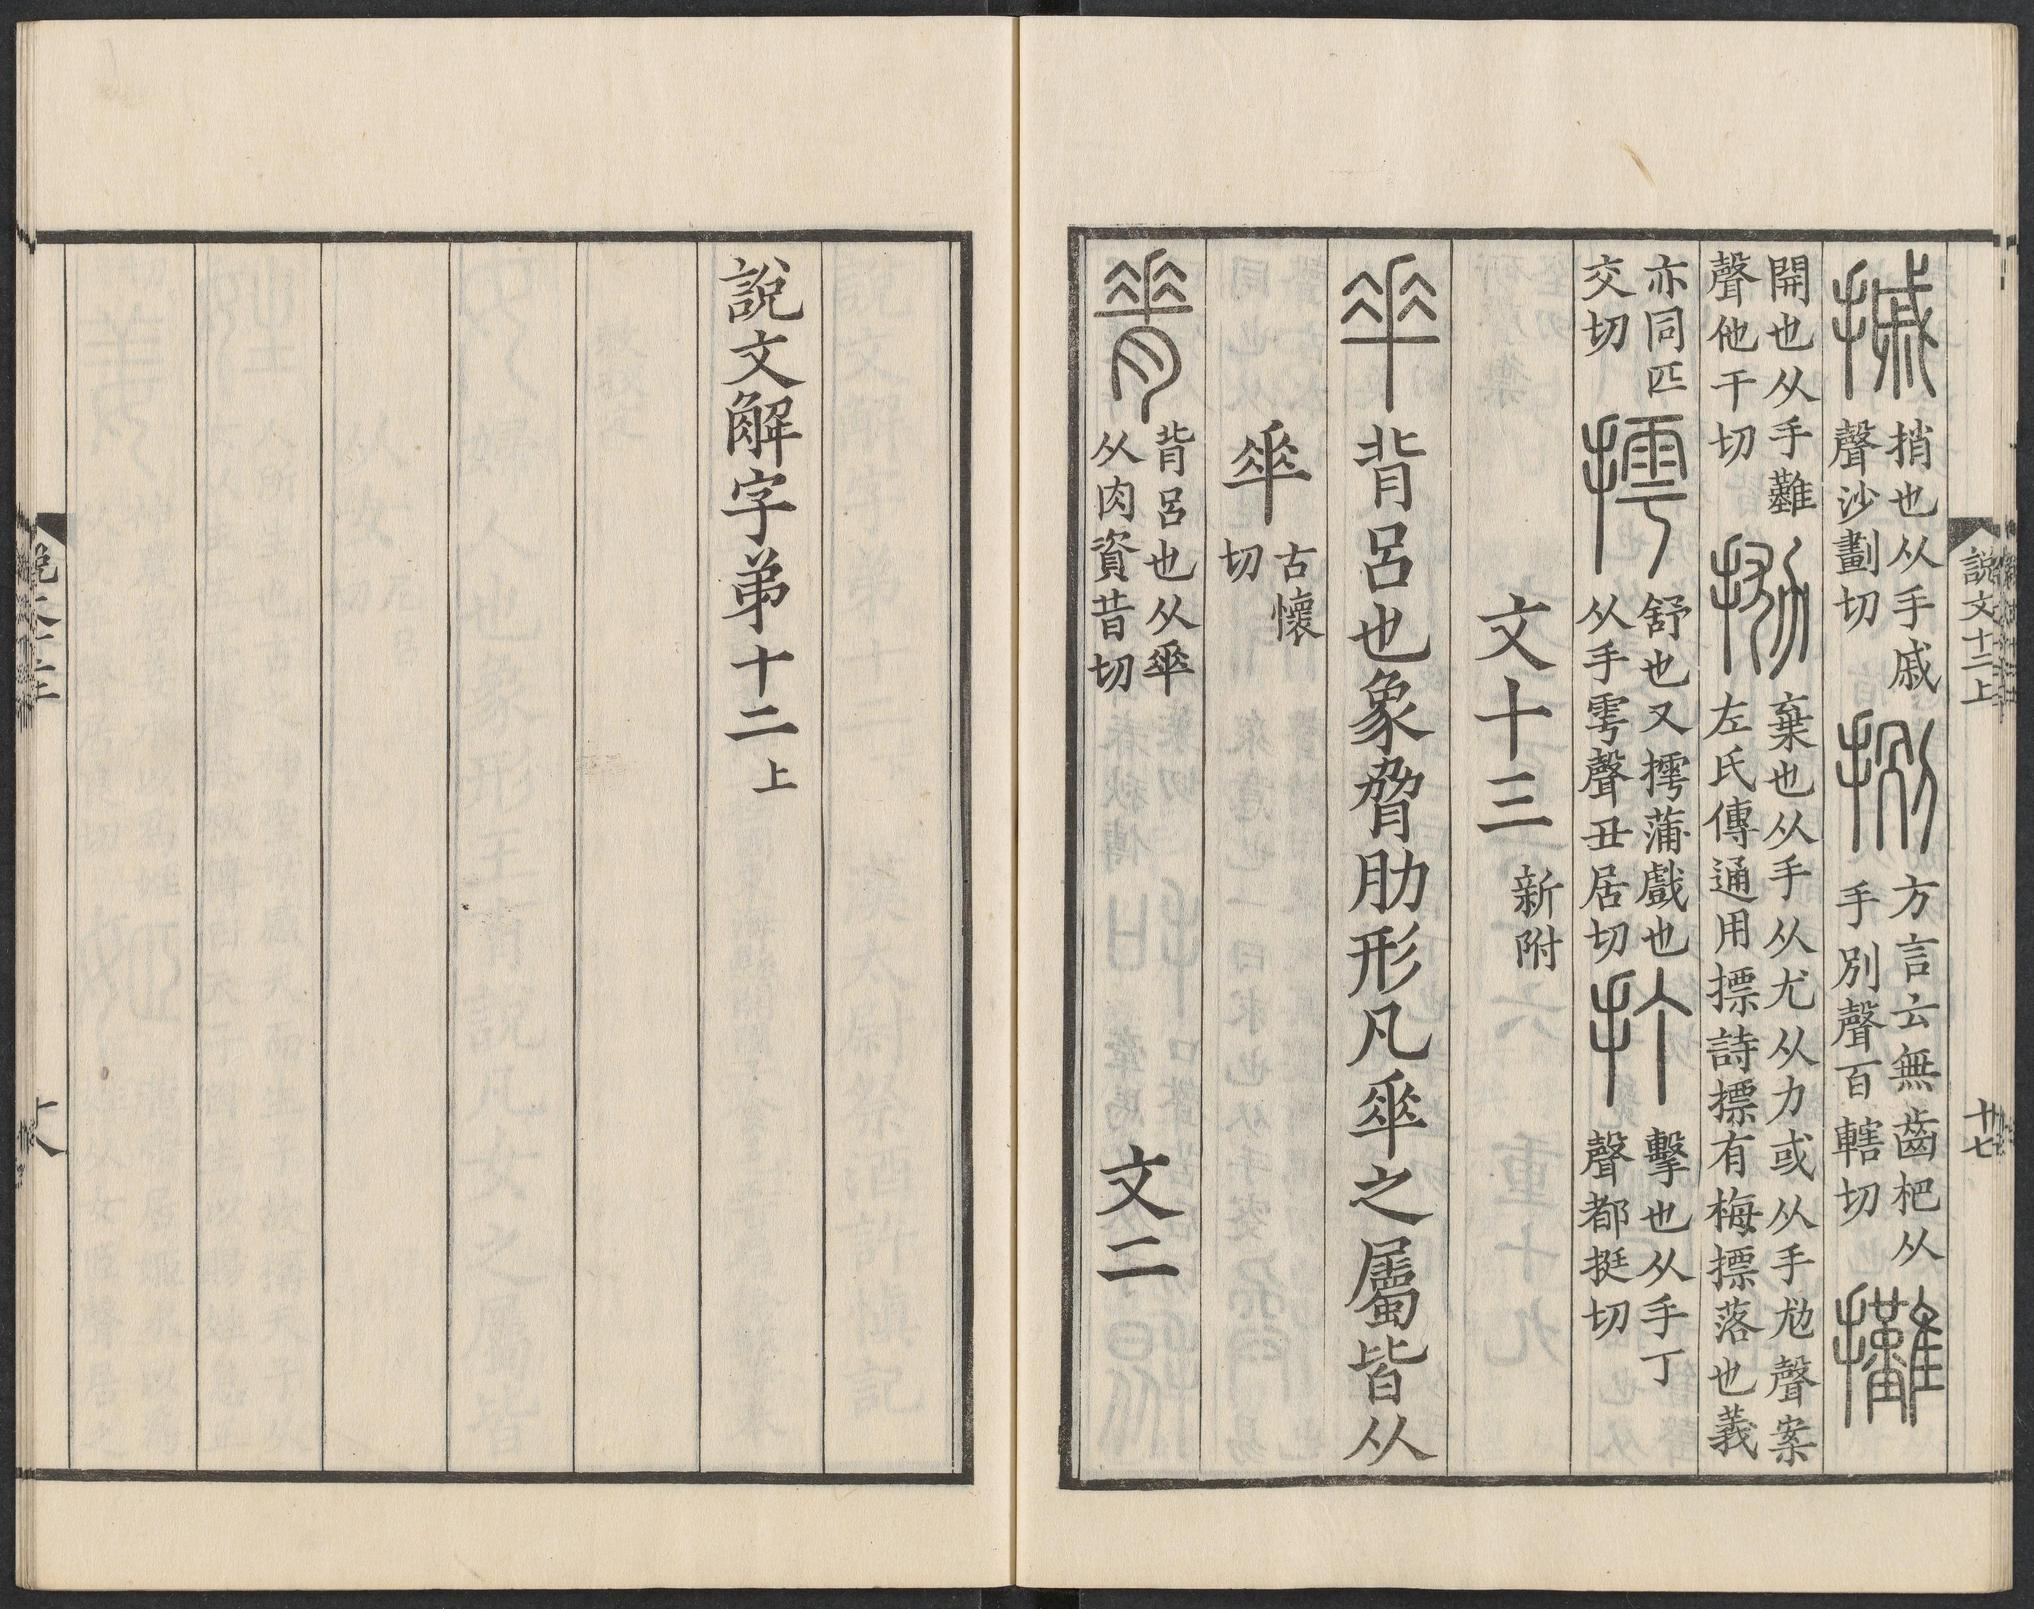 說文十二上 十七
摵捎也从手戚聲沙劃切捌方言云無齒杷从手別聲百轄切攤
開也从手難聲他干切抛棄也从手从尤从力或从手尥聲案左氏傳通用摽詩摽有梅摽落也義
亦同匹交切摴舒也又摴蒲戲也从手雩聲丑居切打擊也从手丁聲都挺切
文十三 新附
𠦬背呂也象脅肋形凡𠦬之屬皆从
𠦬古懷切
𦟝背呂也从𠦬从肉資昔切 文二
說文解字弟十二上